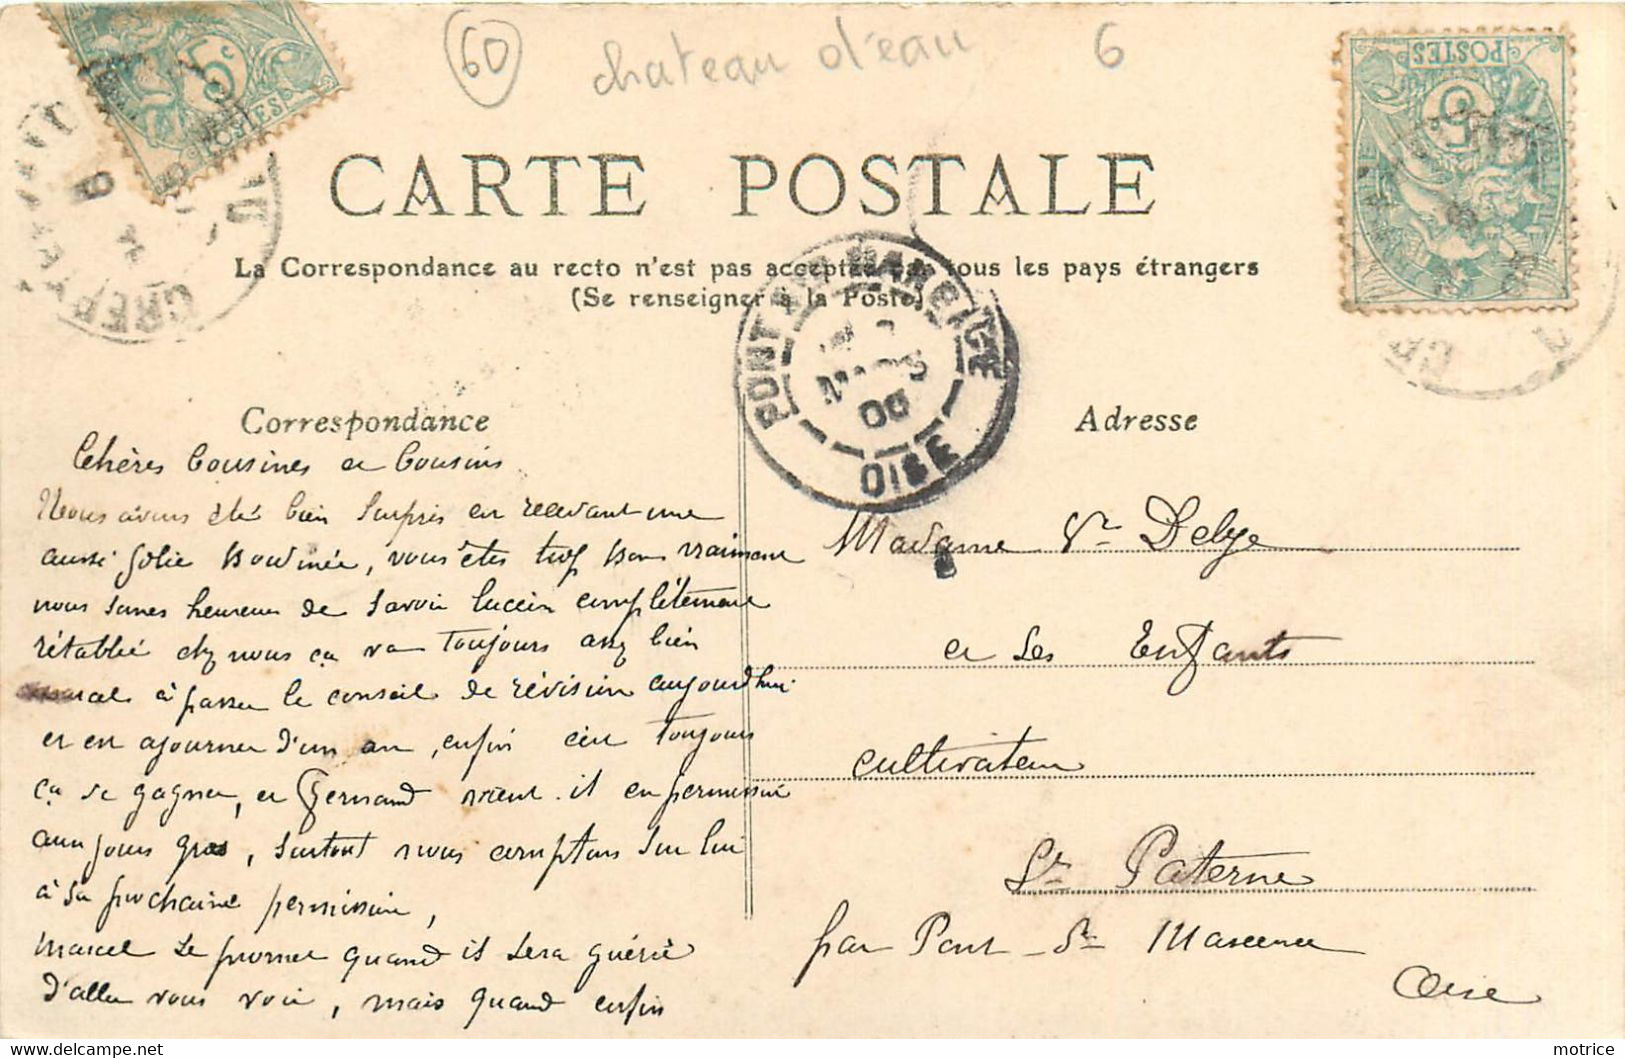 60 chateau d'eau 6
5c
POSTES
POSTES
5
CARTE POSTALE
La Correspondance au recto n'est pas acceptée par tous les pays étrangers
(Se renseigner à la Poste)
PONT STE MAXENCE
MARS
06
OISE
Correspondance
Chères Cousines et Cousins
Nous avons été bien surpris en recevant une
aussi jolie boudinée, vous êtes trop bon vraiment
nous somes heureux de savoir Lucien complètement
rétablie chez nous ça va toujours assez bien
marcel à passer le conseil de révision aujourdhui
et est ajourner d'un an, enfin c'est toujours
ça de gagner, et Fernand vient-il en permission
aux jours gras, surtout nous comptons sur lui
à sa prochaine permission,
Marcel se promet quand il sera guérie
d'aller vous voir, mais quand enfin
Adresse
Madame Ve Delye
et Ses Enfants
cultivateur
St Paterne
par Pont-Ste Maxence
Oise
motrice